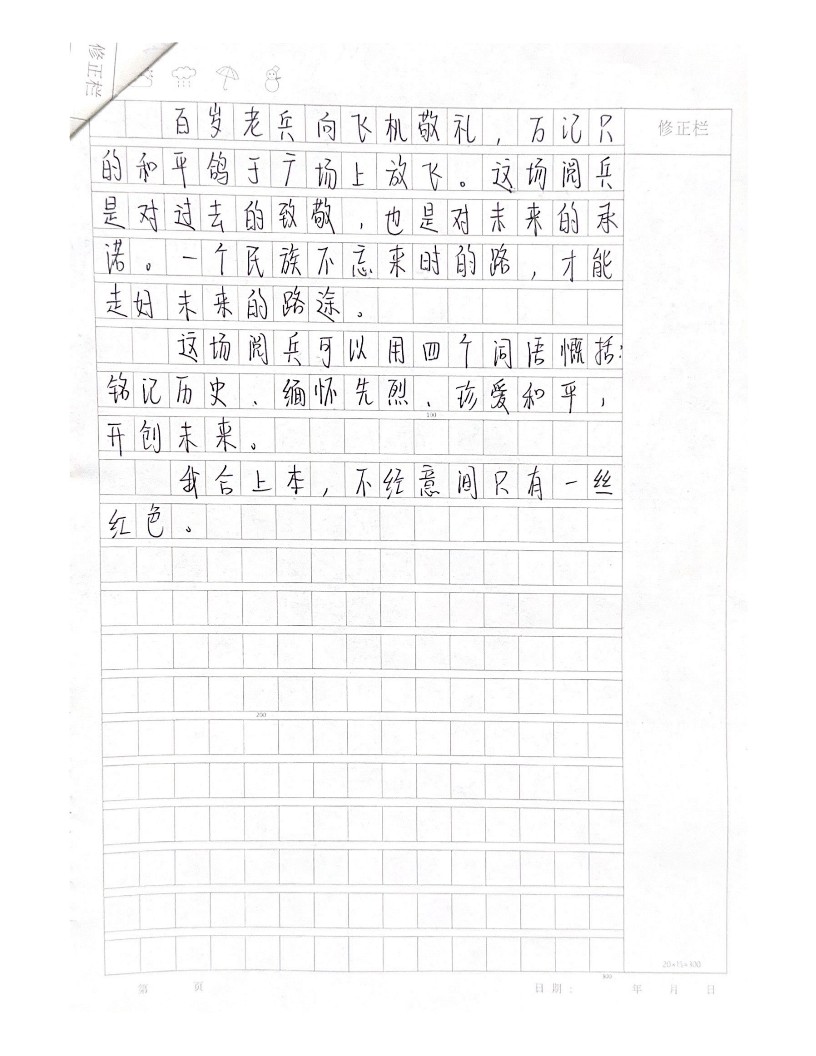 修正栏
百岁老兵向飞机敬礼，万记只
修正栏
的和平鸽于广场上放飞。这场阅兵
是对过去的致敬，也是对未来的承
诺。一个民族不忘来时的路，才能
走好未来的路途。
这场阅兵可以用四个词语慨括：
铭记历史、缅怀先烈、珍爱和平，
100
开创未来。
我合上本，不经意间只有一丝
红色。
200
20×15=300
300
第 页
日期： 年 月 日